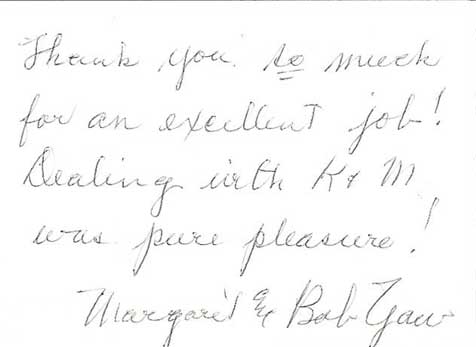 Thank you so much
for an excellent job!
Dealing with K & M
was pure pleasure!
Margaret & Bob Yaw